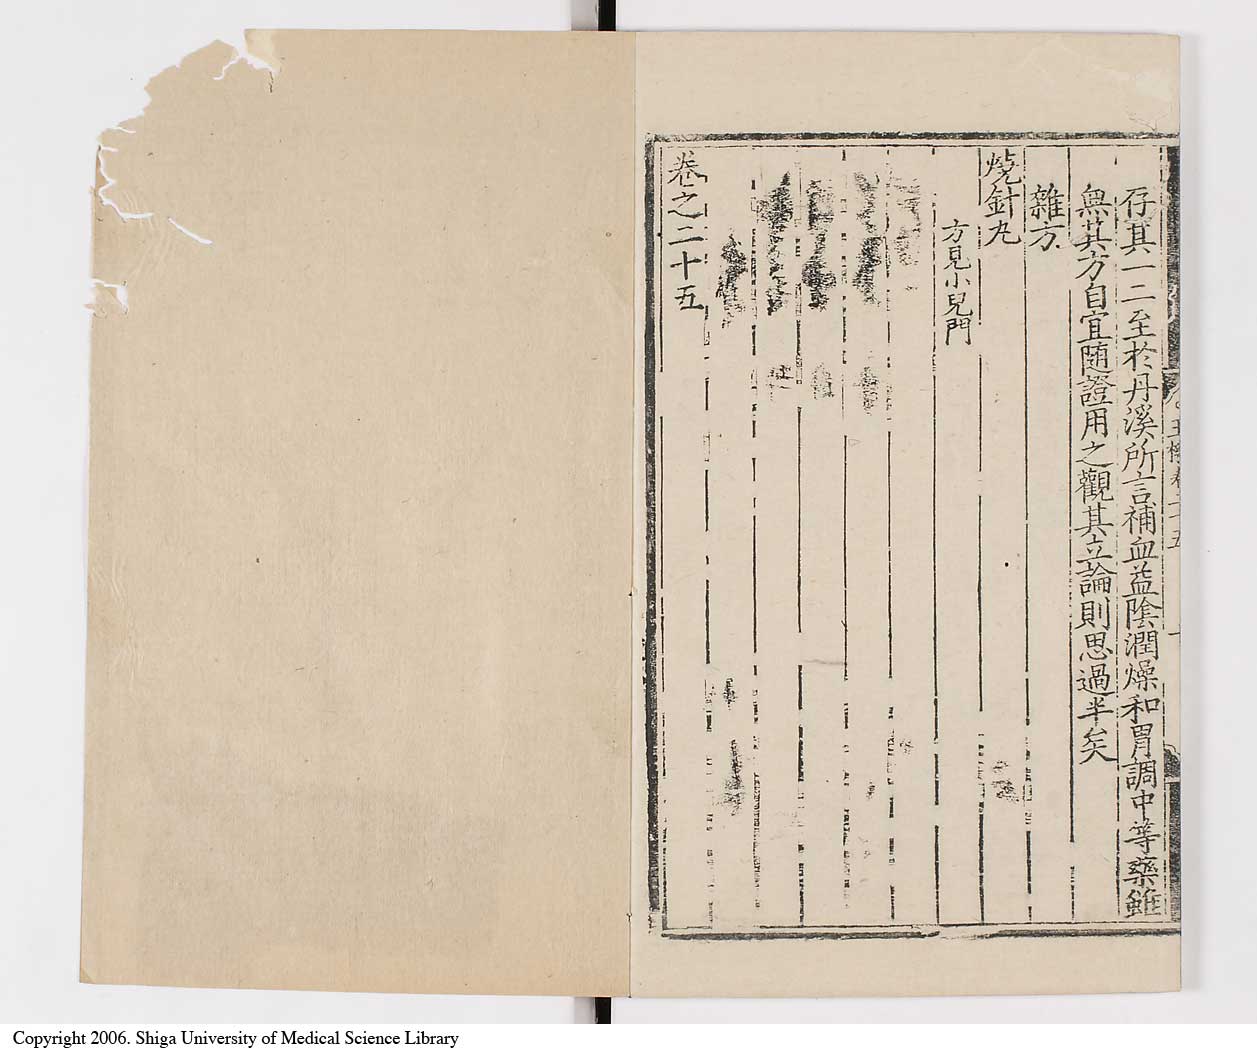 存其一二至於丹溪所言補血益陰潤燥和胃調中等藥雖
無其方自宜随證用之觀其立論則思過半矣
雜方
燒針丸
方見小兒門
卷之二十五
Copyright 2006. Shiga University of Medical Science Library